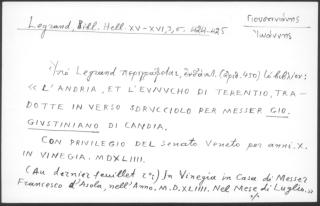 Legrand, Bibl. Hell. XV-XVI, 3, σ. 424-425
Γιουστινιάνης
Ἰωάννης
Ὑπό Legrand περιγράφεται, (ἀριθ. 450) τό βιβλίον:
« L'ANDRIA, ET L'EVNVCHO DI TERENTIO, TRA-
DOTTE IN VERSO SDRVCCIOLO PER MESSER GIO.
GIVSTINIANO DI CANDIA.
CON PRIVILEGIO DEL senato Veneto per anni. X.
IN VINEGIA. MDXLIIII.
(Au dernier feuillet rº:) In Vinegia in Casa di Messer
Francesco d'Asola, nell'Anno, M.D.XLIIII. Nel Mese di Luglio.»